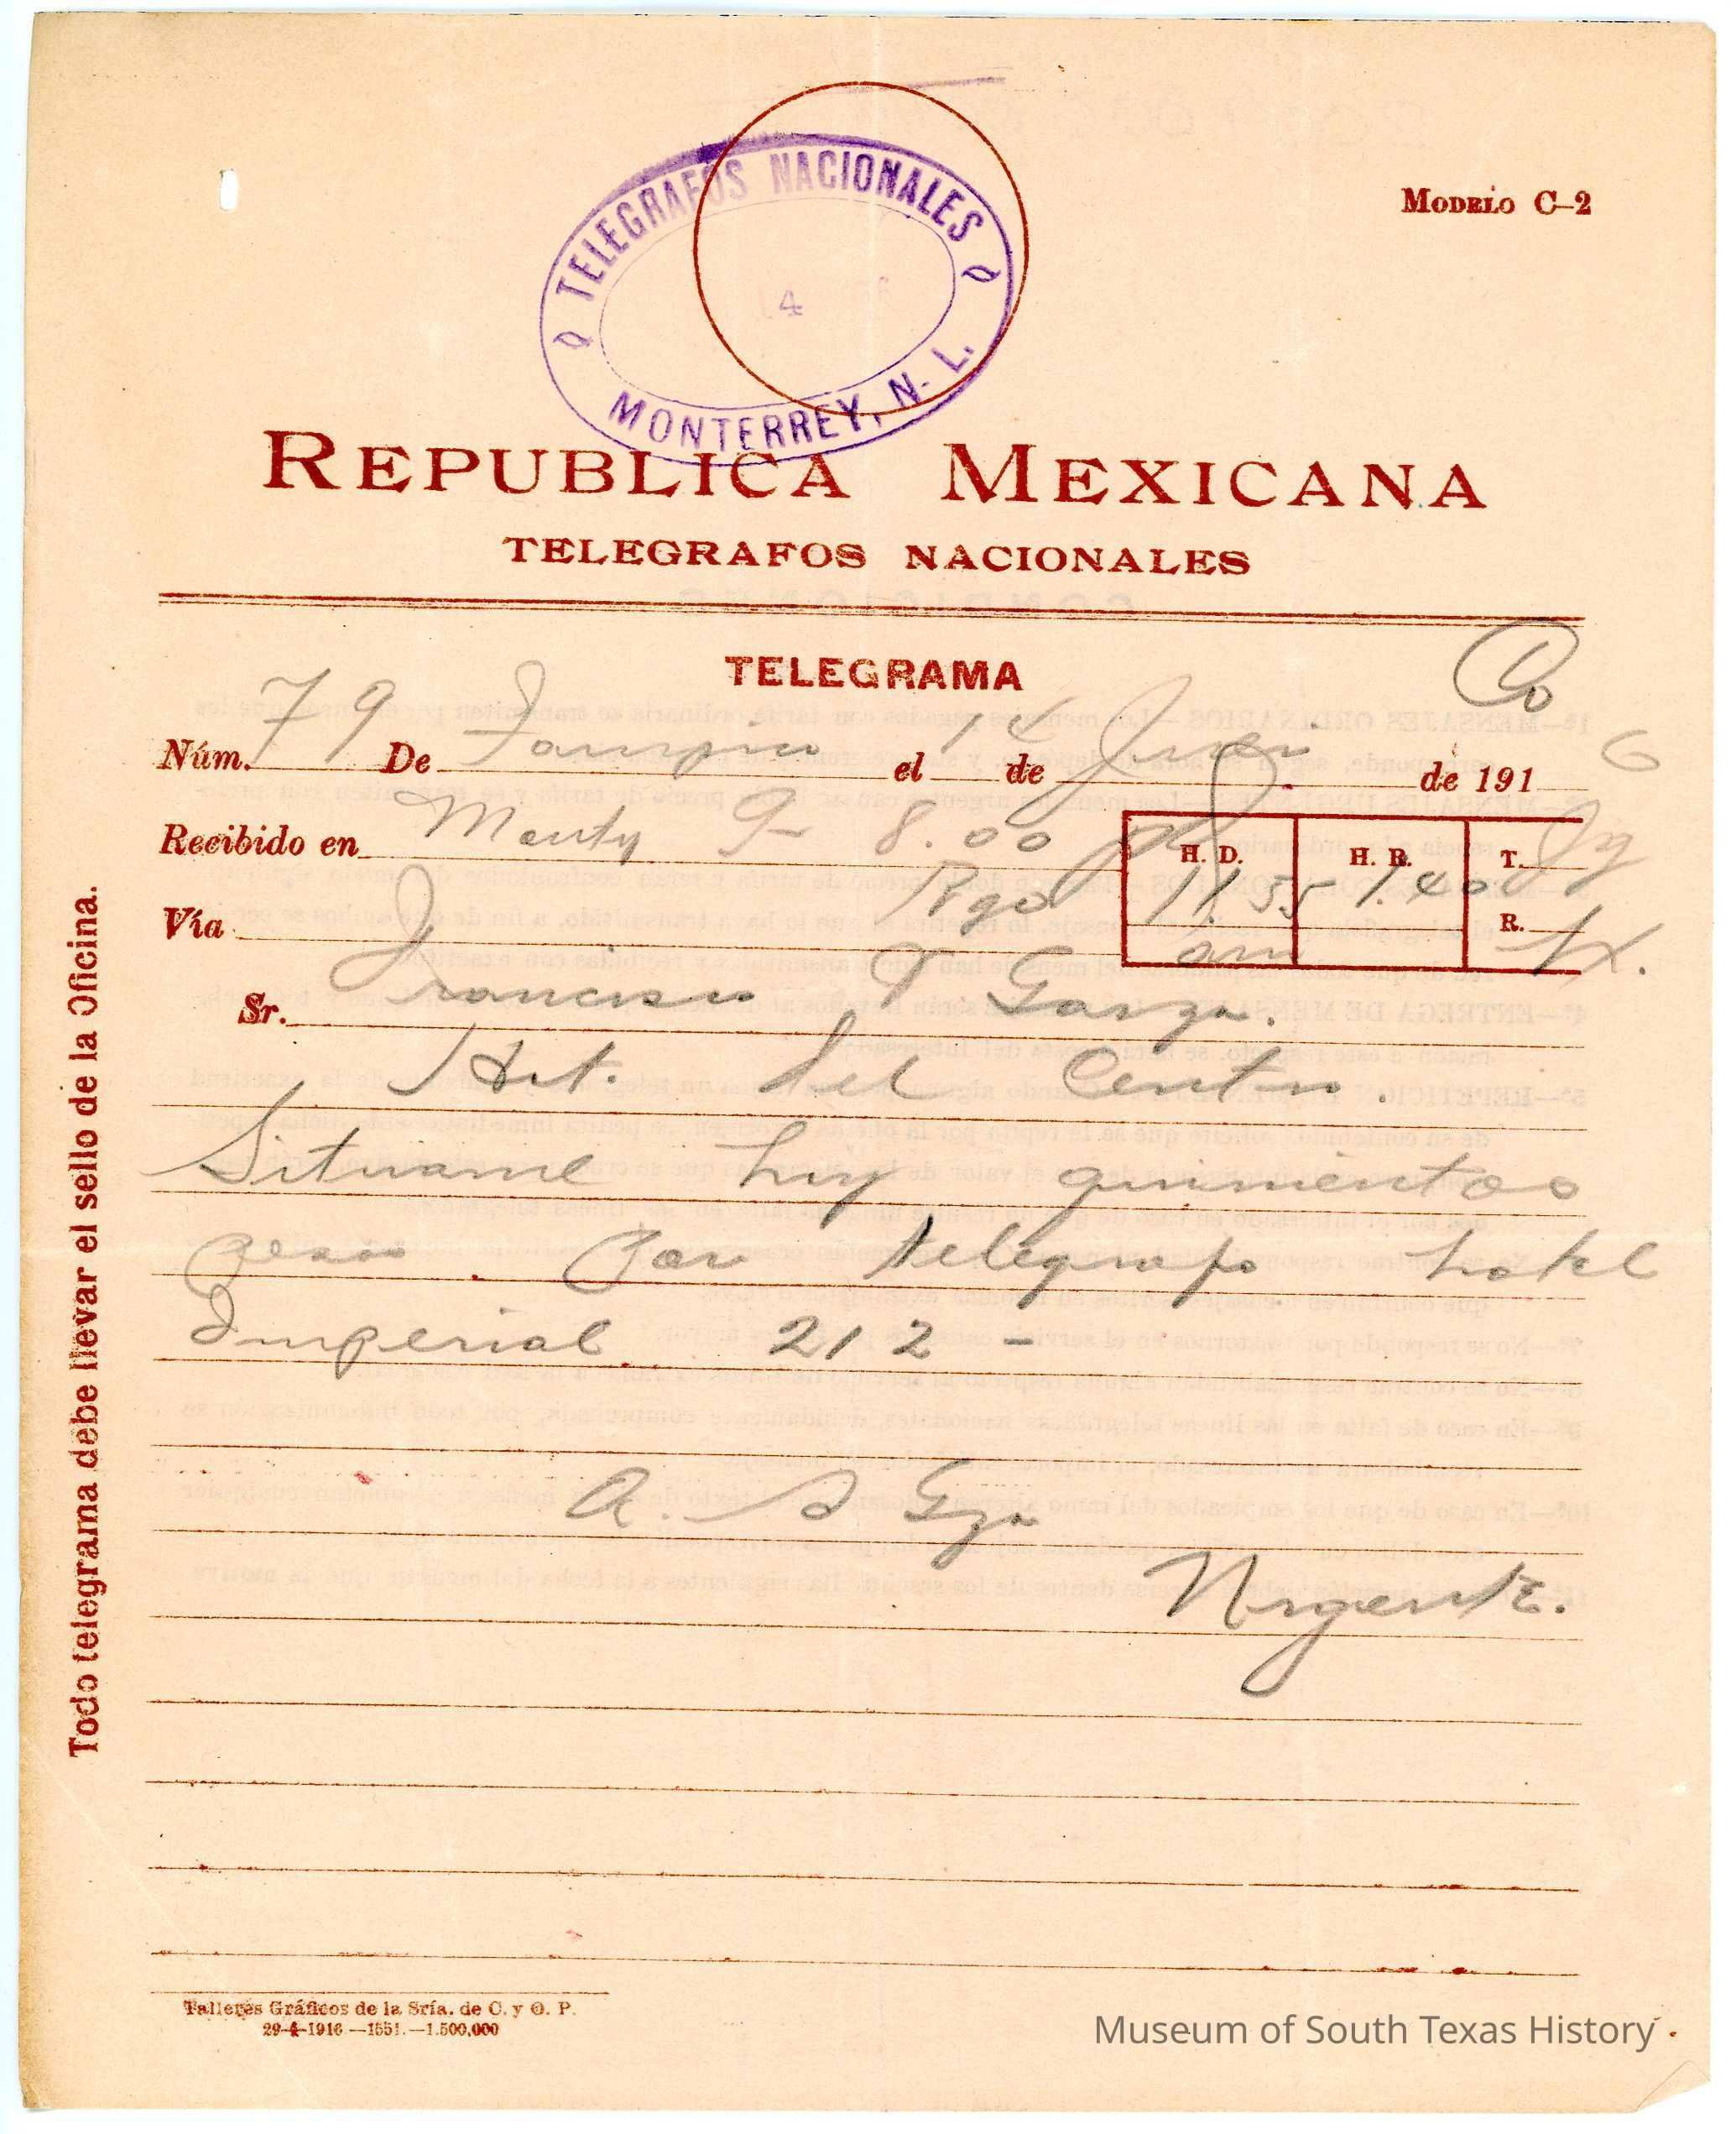 TELEGRAFOS NACIONALES
4
MONTERREY, N. L.
MODELO C-2
REPUBLICA MEXICANA
TELEGRAFOS NACIONALES
TELEGRAMA
Núm. 79 De Tampico el 14 de de 1916
Recibido en Monty 9- 8.00
H. D. H. R. T.
Vía Rgo 11.55 1.40 R.
am
Sr. Francisco T Garza.
Hot. del Centro.
Situame hoy quinientos
pesos Por telegrafo hotel
Imperial 212 -
A. S Gza
Urgente.
Todo telegrama debe llevar el sello de la Oficina.
Talleres Gráficos de la Sría. de C. y O. P.
29-4-1916.—1551.—1.500,000
Museum of South Texas History